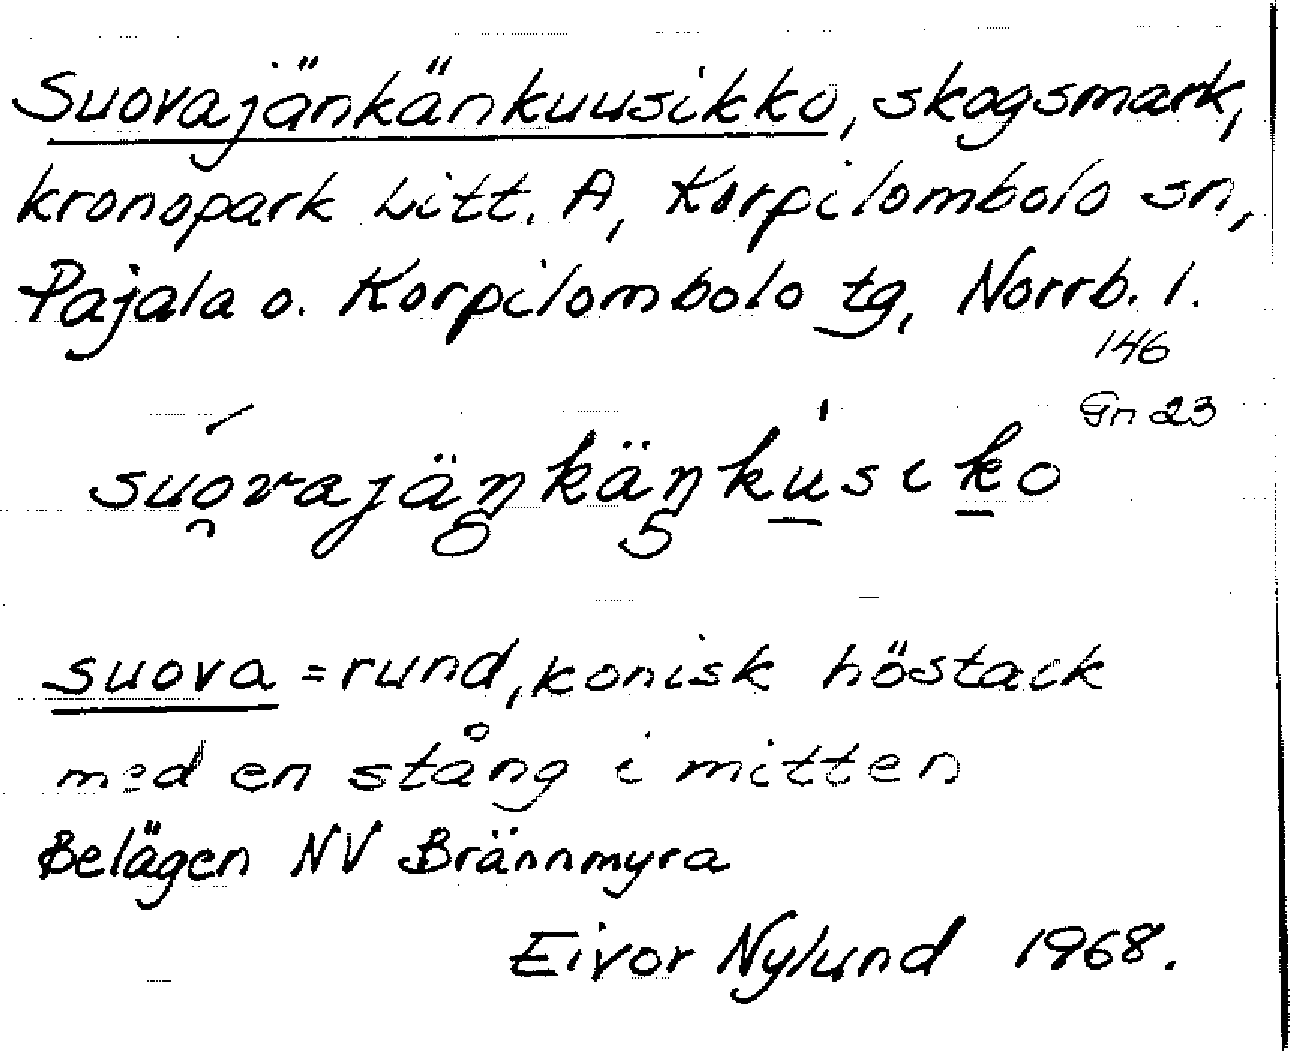 Suovajänkänkuusikko, skogsmark,
kronopark Litt. A, Korpilombolo sn,
Pajala o. Korpilombolo tg, Norrb. l.
146
Gn 23
suovajäŋkäŋkusiko
suova = rund, konisk höstack
med en stång i mitten
Belägen NV Brännmyra
Eivor Nylund 1968.